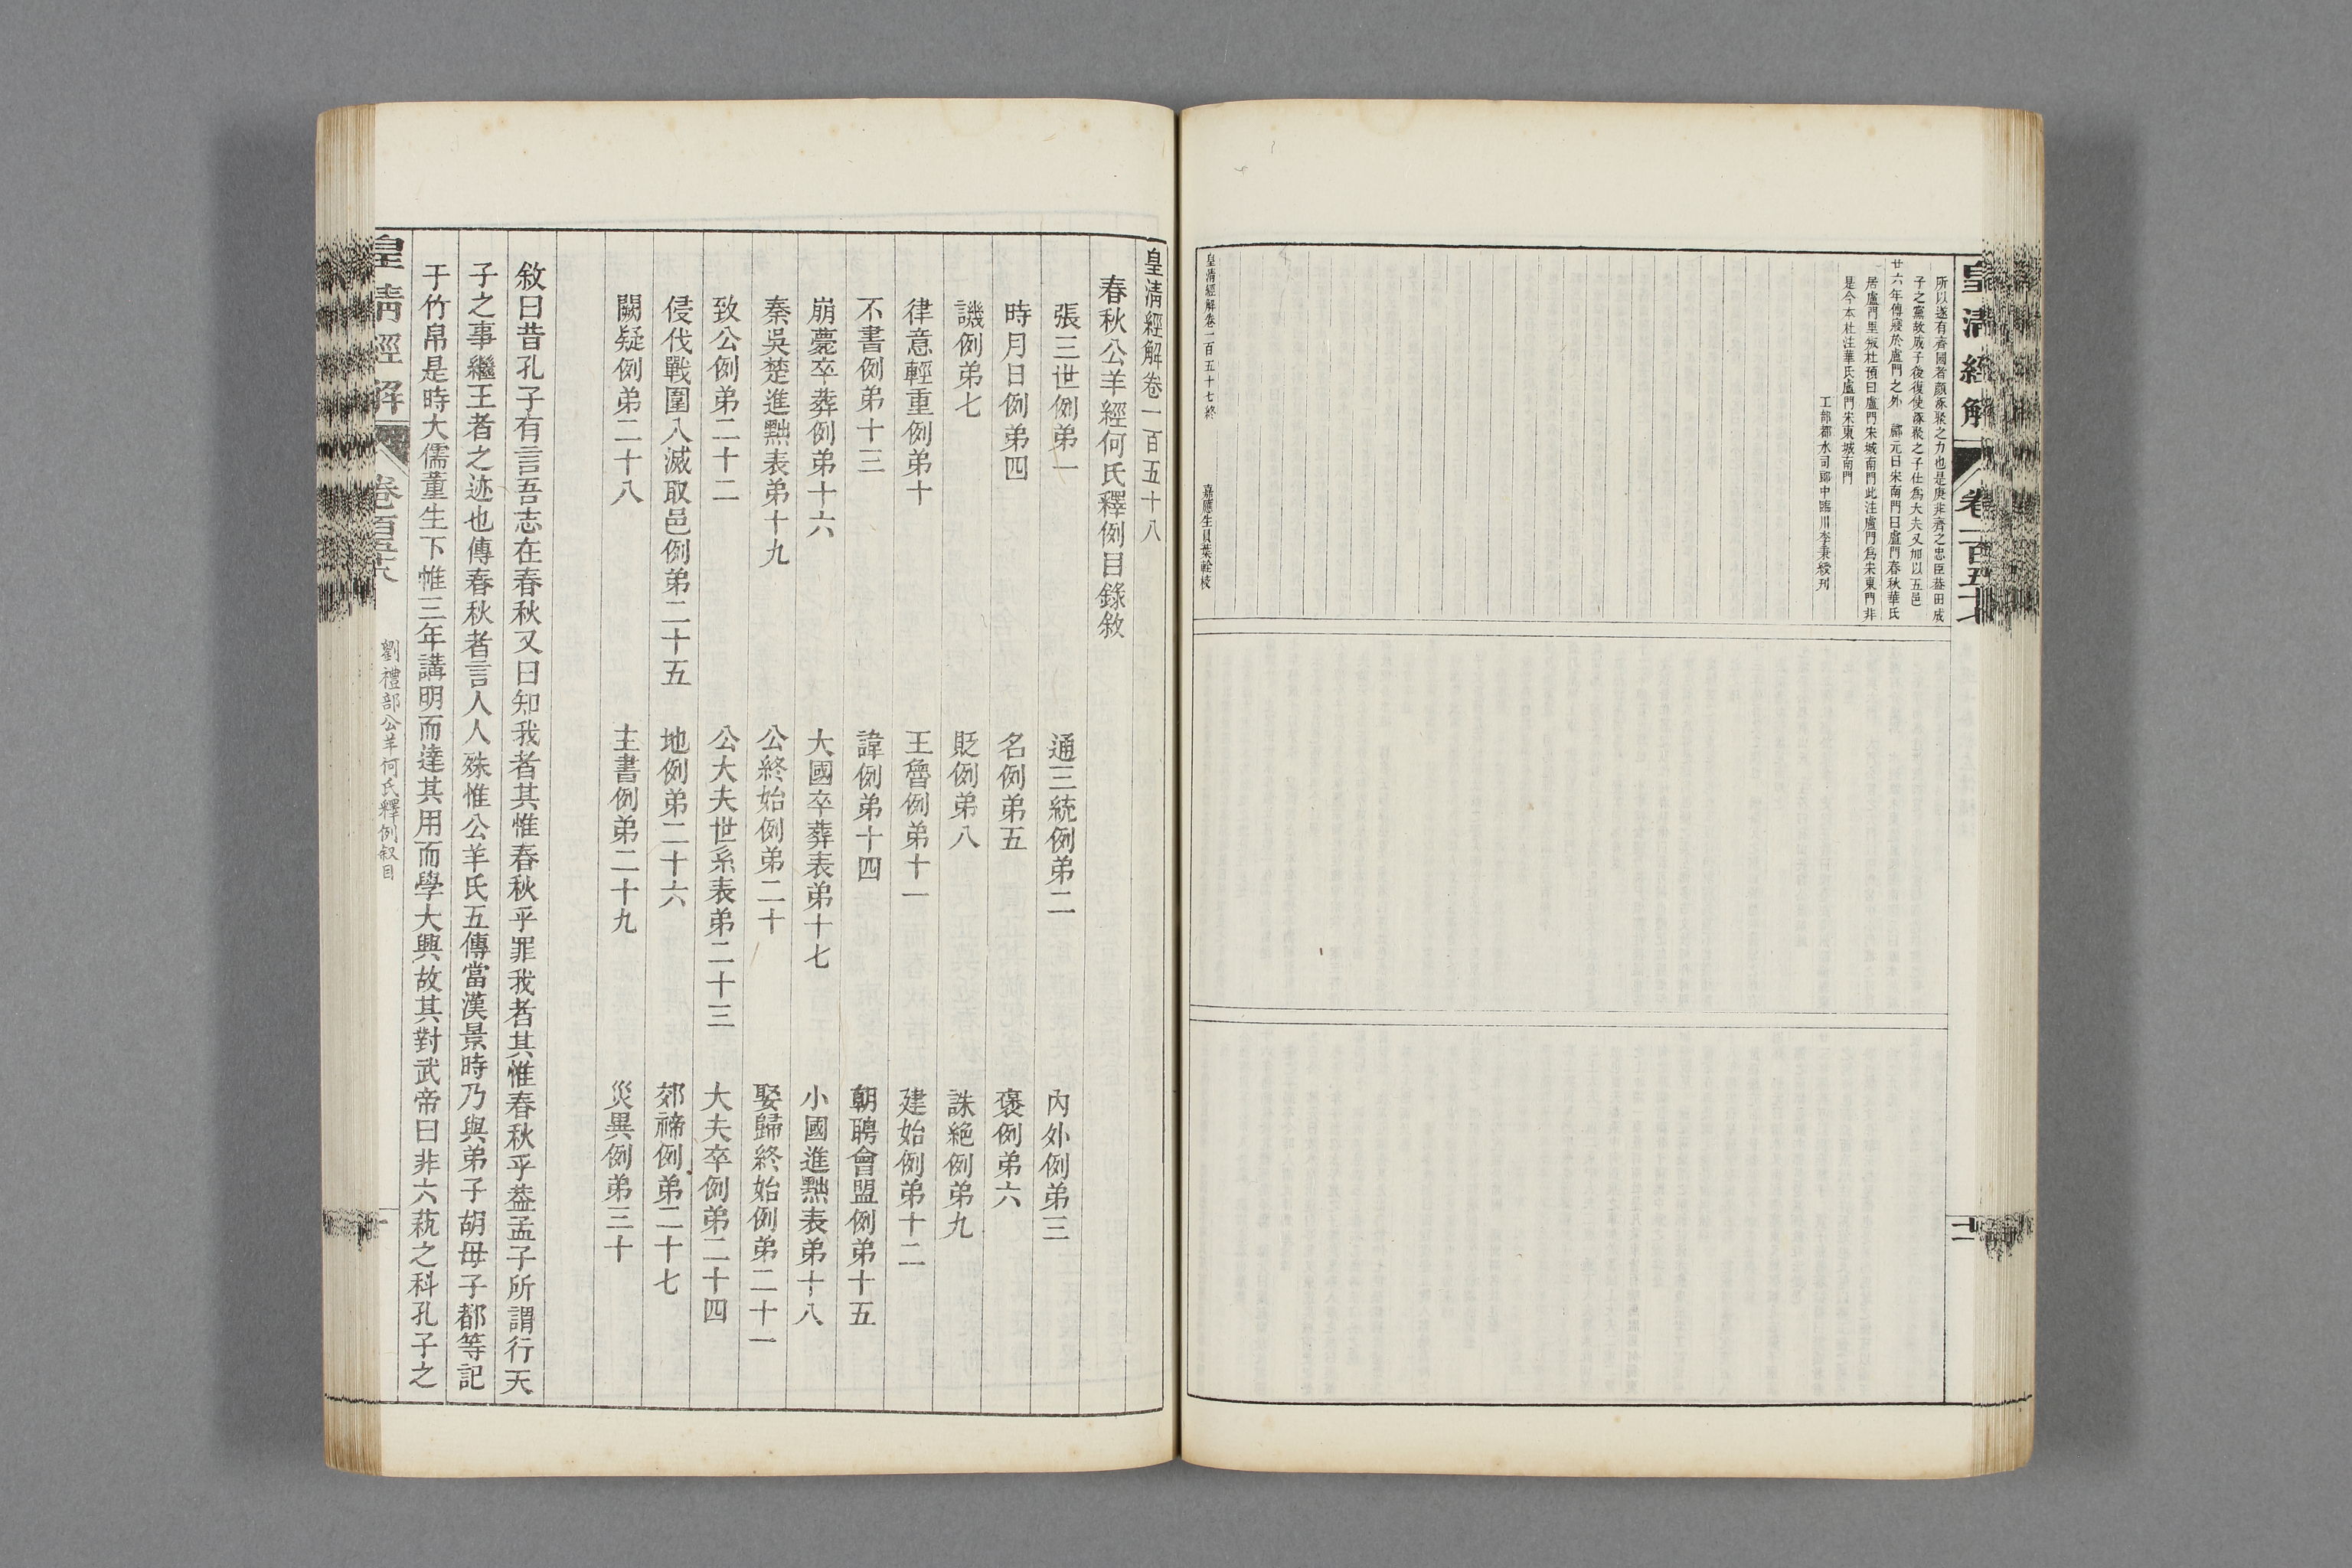 皇清經解
卷一百五十七
十二
所以遂有齊國者顏涿聚之力也是庚非齊之忠臣葢田成
子之黨故成子後復使涿聚之子仕爲大夫又加以五邑
廿六年傳寢於盧門之外　酈元曰宋南門曰盧門春秋華氏
居盧門里叛杜預曰盧門宋城南門此注盧門爲宋東門非
是今本杜注華氏盧門宋東城南門
工部都水司郎中臨川李秉綬刊
皇清經解卷一百五十七終　嘉應生員葉輅校
皇清經解卷一百五十八
春秋公羊經何氏釋例目錄敘
張三世例弟一　通三統例弟二　內外例弟三
時月日例弟四　名例弟五　褒例弟六
譏例弟七　貶例弟八　誅絕例弟九
律意輕重例弟十　王魯例弟十一　建始例弟十二
不書例弟十三　諱例弟十四　朝聘會盟例弟十五
崩薨卒葬例弟十六　大國卒葬表弟十七　小國進黜表弟十八
秦吳楚進黜表弟十九　公終始例弟二十　娶歸終始例弟二十一
致公例弟二十二　公大夫世系表弟二十三　大夫卒例弟二十四
侵伐戰圍入滅取邑例弟二十五　地例弟二十六　郊禘例弟二十七
闕疑例弟二十八　主書例弟二十九　災異例弟三十
敘曰昔孔子有言吾志在春秋又曰知我者其惟春秋乎罪我者其惟春秋乎葢孟子所謂行天
子之事繼王者之迹也傳春秋者言人人殊惟公羊氏五傳當漢景時乃與弟子胡毋子都等記
于竹帛是時大儒董生下帷三年講明而達其用而學大興故其對武帝曰非六蓺之科孔子之
皇清經解
卷一百五十八
劉禮部公羊何氏釋例叙目
一